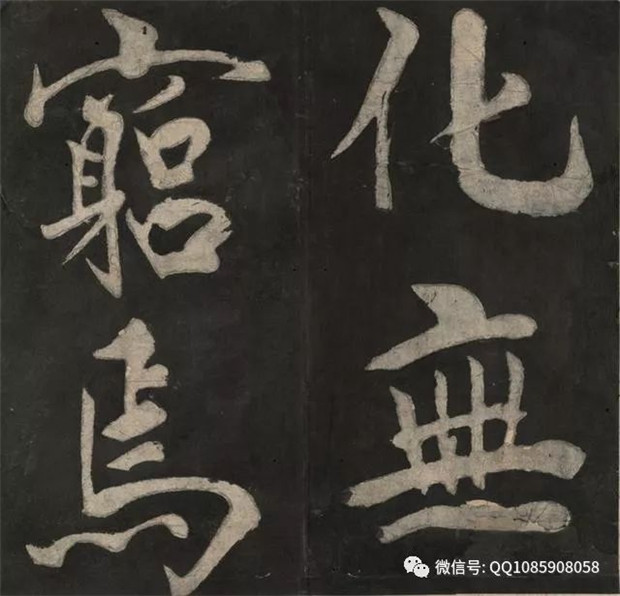 化無
窮焉
微信号: QQ1085908058